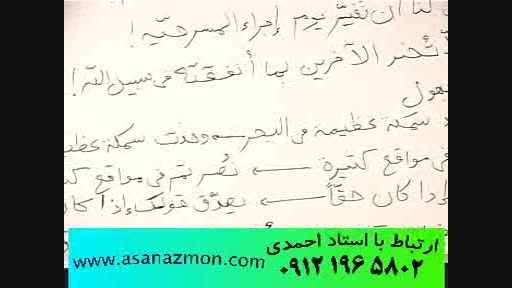 لنا أن نغيّر يوم إجراء المسرحيّة!
تُخبر الآخرين بما أنفقته في سبيل الله!
هول
سمكة عظيمة في البحر ← وُجدت سمكة عظ
في مواقع كثيرة ← نُصرتم في مواقع كث
إذا كان حقّاً ← يصدّق قولك إذا كان
ارتباط با استاد احمدی
www.asanazmon.com
۰۹۱۲ ۱۹۶ ۵۸۰۲